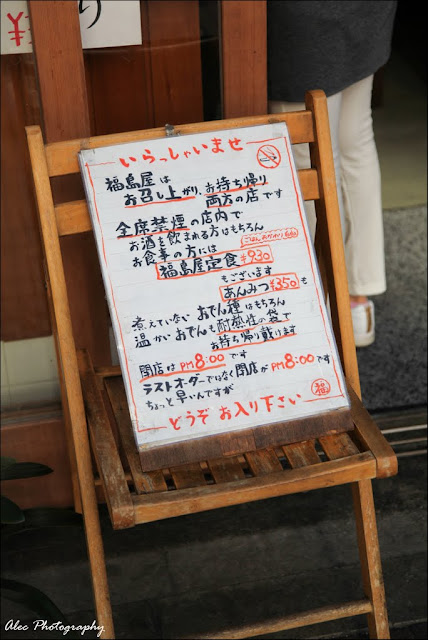 いらっしゃいませ
福島屋は
お召し上がり、お持ち帰り
両方の店です
全席禁煙の店内で
お酒を飲まれる方はもちろん
お食事の方には
福島屋定食¥930
もございます
あんみつ¥350も
煮えていないおでん種はもちろん
温かいおでんも耐熱性の袋で
お持ち帰り頂けます
閉店はPM8:00です
ラストオーダーではなく閉店がPM8:00です
ちょっと早いんですが
福
どうぞお入り下さい
Alec Photography